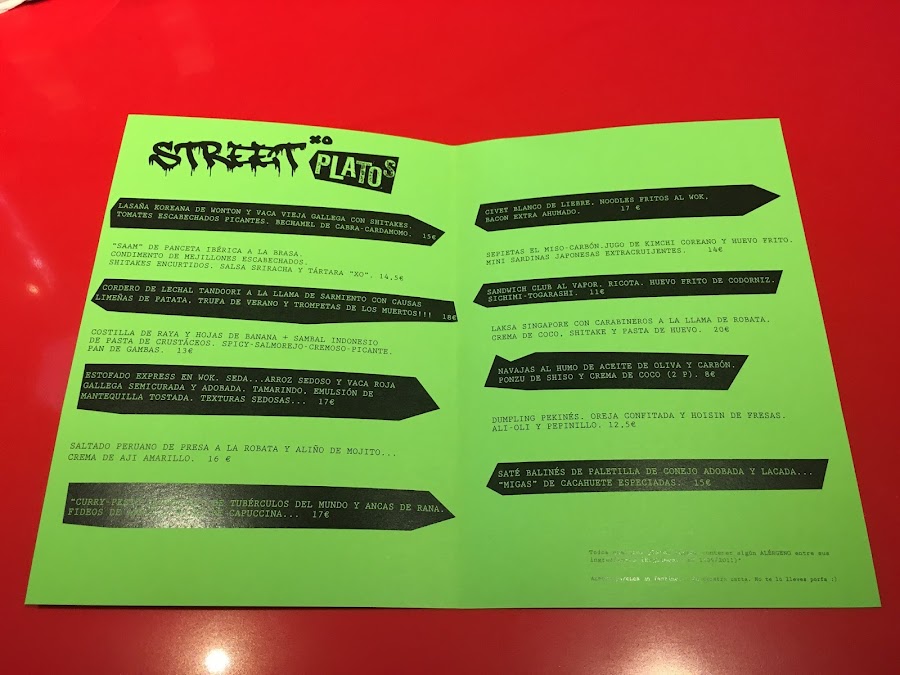 STREET XO
PLATOS
LASAÑA KOREANA DE WONTON Y VACA VIEJA GALLEGA CON SHITAKES.
TOMATES ESCABECHADOS PICANTES. BECHAMEL DE CABRA-CARDAMOMO. 15€
"SAAM" DE PANCETA IBÉRICA A LA BRASA.
CONDIMENTO DE MEJILLONES ESCABECHADOS.
SHITAKES ENCURTIDOS. SALSA SRIRACHA Y TÁRTARA "XO". 14,5€
CORDERO DE LECHAL TANDOORI A LA LLAMA DE SARMIENTO CON CAUSAS
LIMEÑAS DE PATATA, TRUFA DE VERANO Y TROMPETAS DE LOS MUERTOS!!! 18€
COSTILLA DE RAYA Y HOJAS DE BANANA + SAMBAL INDONESIO
DE PASTA DE CRUSTÁCEOS. SPICY-SALMOREJO-CREMOSO-PICANTE.
PAN DE GAMBAS. 13€
ESTOFADO EXPRESS EN WOK. SEDA...ARROZ SEDOSO Y VACA ROJA
GALLEGA SEMICURADA Y ADOBADA, TAMARINDO, EMULSIÓN DE
MANTEQUILLA TOSTADA. TEXTURAS SEDOSAS... 17€
SALTADO PERUANO DE PRESA A LA ROBATA Y ALIÑO DE MOJITO...
CREMA DE AJI AMARILLO. 16 €
"CURRY- DE TUBÉRCULOS DEL MUNDO Y ANCAS DE RANA.
FIDEOS DE -CAPUCCINA... 17€
CIVET BLANCO DE LIEBRE. NOODLES FRITOS AL WOK,
BACON EXTRA AHUMADO. 17 €
SEPIETAS EL MISO-CARBÓN.JUGO DE KIMCHI COREANO Y HUEVO FRITO.
MINI SARDINAS JAPONESAS EXTRACRUJIENTES. 14€
SANDWICH CLUB AL VAPOR. RICOTA. HUEVO FRITO DE CODORNIZ.
SICHIMI-TOGARASHI. 11€
LAKSA SINGAPORE CON CARABINEROS A LA LLAMA DE ROBATA.
CREMA DE COCO, SHITAKE Y PASTA DE HUEVO. 20€
NAVAJAS AL HUMO DE ACEITE DE OLIVA Y CARBÓN.
PONZU DE SHISO Y CREMA DE COCO (2 P). 8€
DUMPLING PEKINÉS. OREJA CONFITADA Y HOISIN DE FRESAS.
ALI-OLI Y PEPINILLO. 12,5€
SATÉ BALINÉS DE PALETILLA DE CONEJO ADOBADA Y LACADA...
"MIGAS" DE CACAHUETE ESPECIADAS. 15€
contener algún ALÉRGENO entre sus
carta. No te la lleves porfa :)